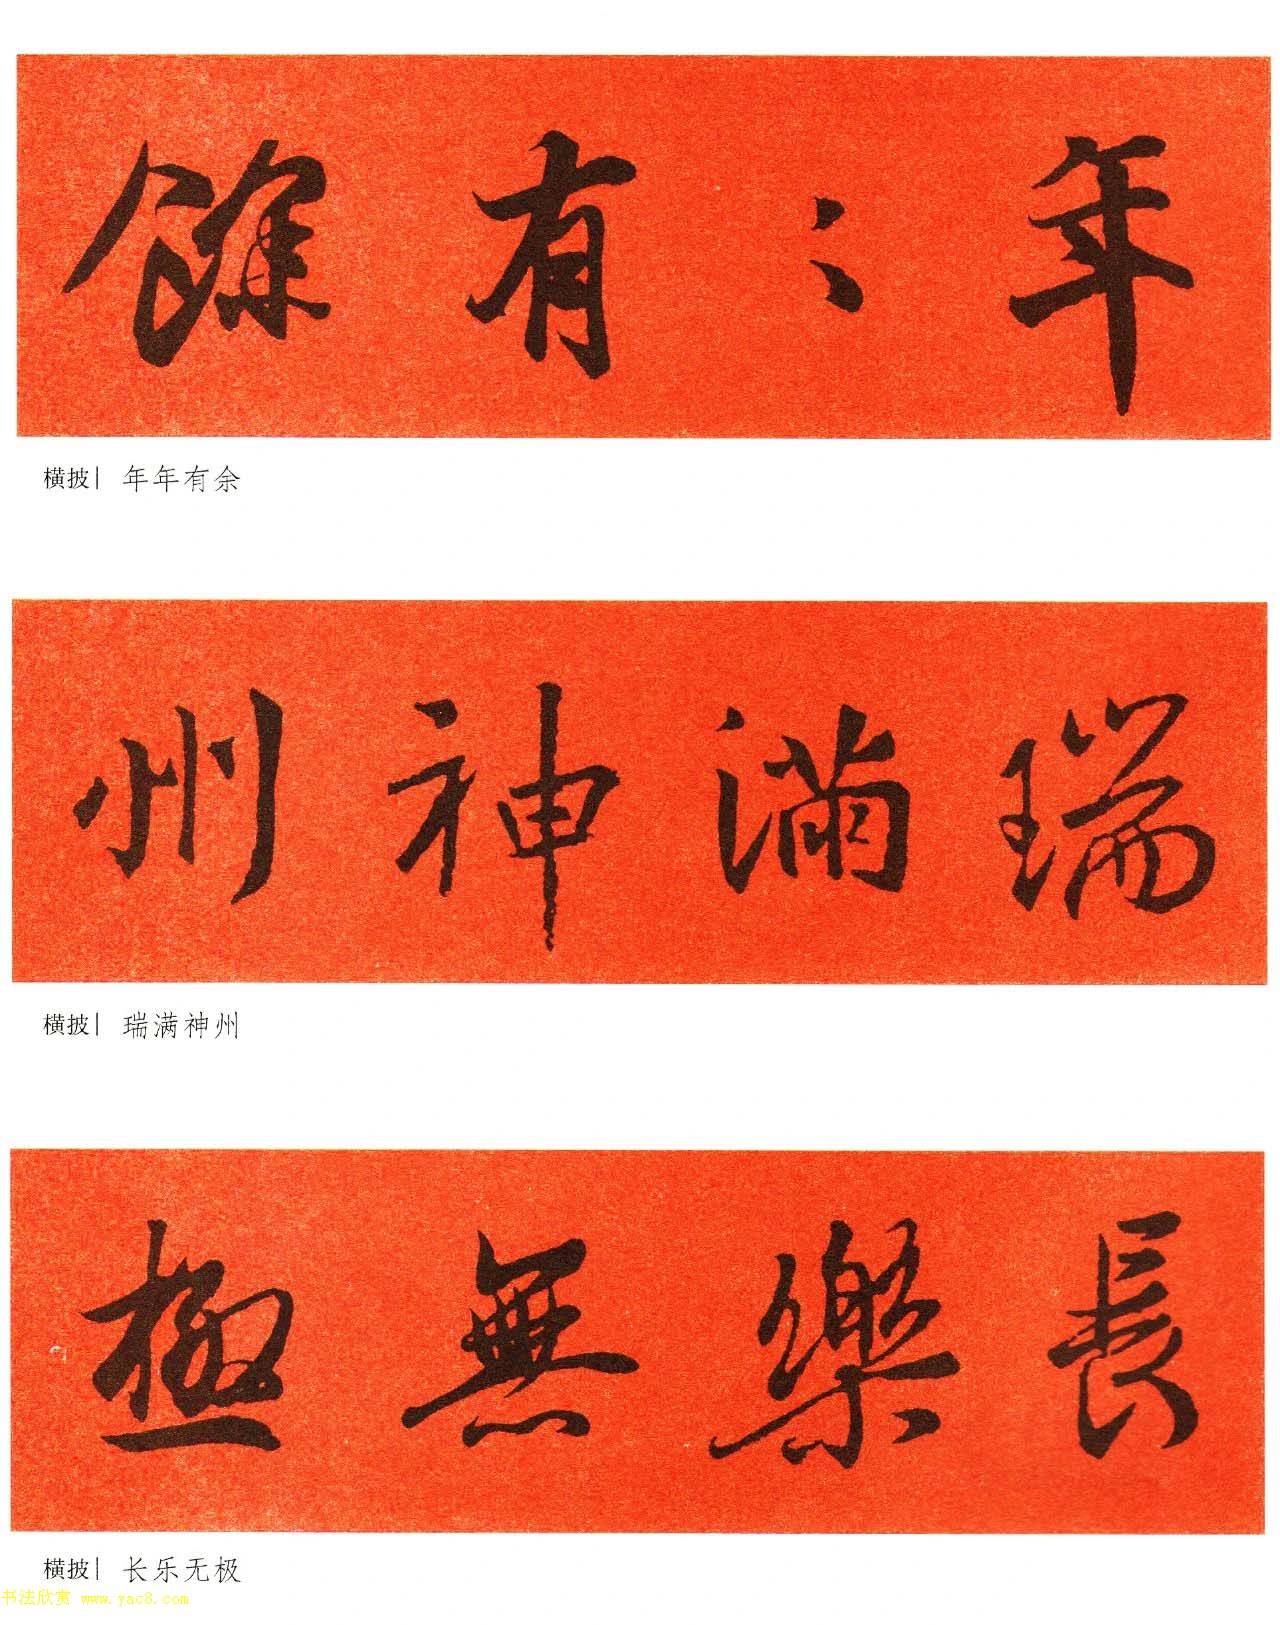 年〻有餘
横披| 年年有余
瑞滿神州
横披| 瑞满神州
長樂無極
横披| 长乐无极
书法欣赏 www.yac8.com